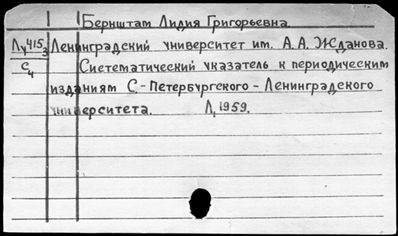 Бернштам Лидия Григорьевна.
Л415 Ленинградский университет им. А.А. Жданова.
С4 Систематический указатель к периодическим
изданиям С.-Петербургского-Ленинградского
университета. Л, 1959.